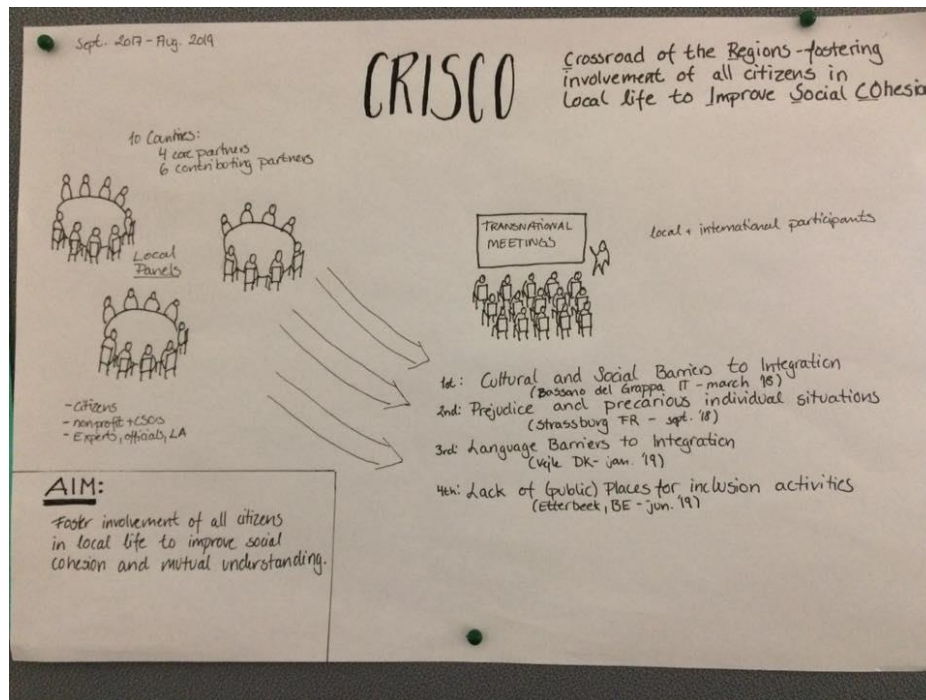 Sept. 2017 - Aug. 2019
CRISCO
Crossroad of the Regions - fostering
involvement of all citizens in
Local life to Improve Social COhesio
10 Counties:
4 core partners
6 contributing partners
Local
Panels
- citizens
- nonprofit + CSOs
- Experts, officials, LA
TRANSNATIONAL
MEETINGS
local + international participants
1st: Cultural and Social Barriers to Integration
(Bassano del Grappa IT - march '18)
2nd: Prejudice and precarious individual situations
(Strassburg FR - sept. '18)
3rd: Language Barriers to Integration
(Vejle DK - jan. '19)
4th: Lack of (public) Places for inclusion activities
(Etterbeek, BE - jun. '19)
AIM:
Foster involvement of all citizens
in local life to improve social
cohesion and mutual understanding.